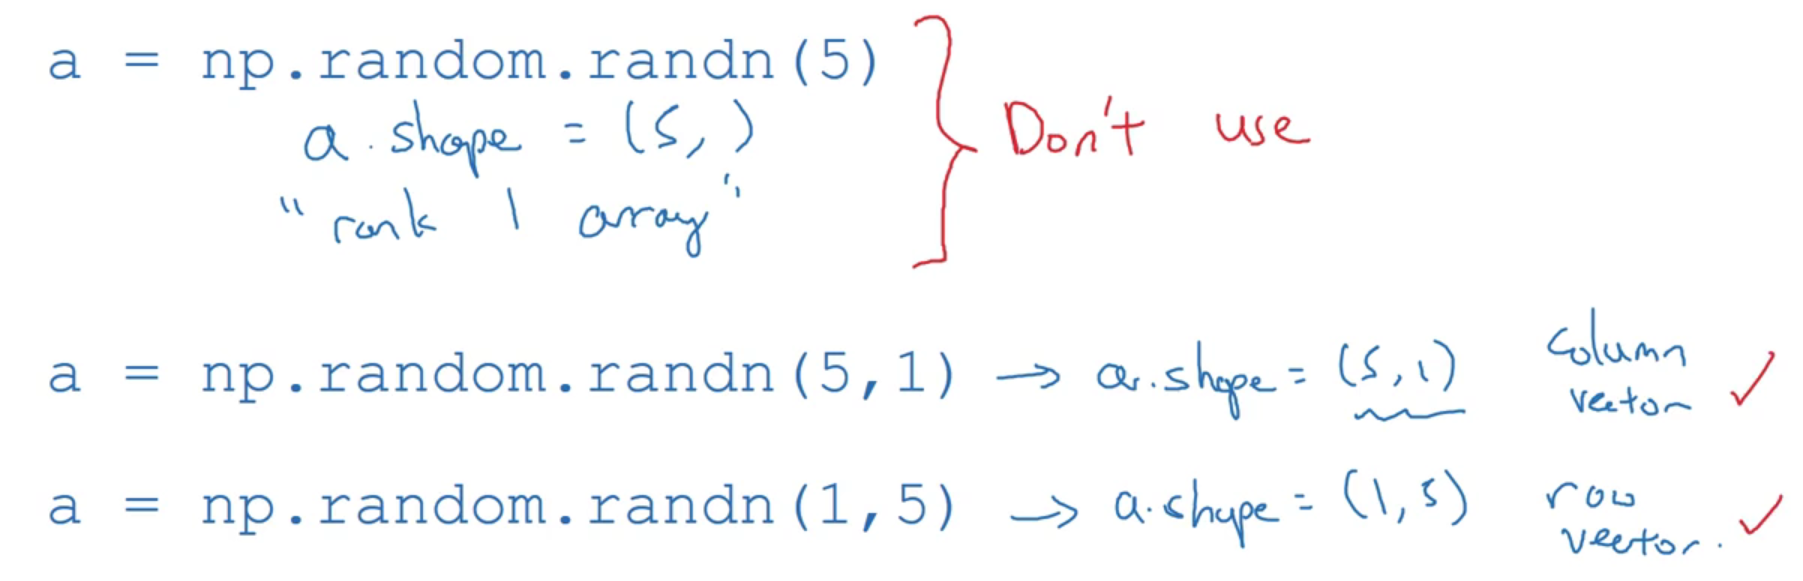 a = np.random.randn(5)
a.shape = (5,)
"rank 1 array"
Don't use
a = np.random.randn(5,1) → a.shape = (5,1) column vector ✓
a = np.random.randn(1,5) → a.shape = (1,5) row vector. ✓